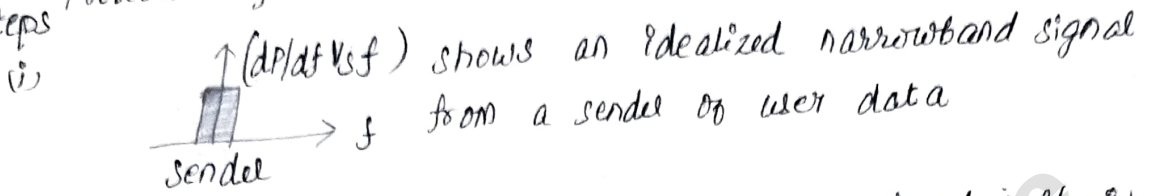 teps
(i) (dP/df Vs f) shows an idealized narrowband signal
from a sender of user data
f
Sender